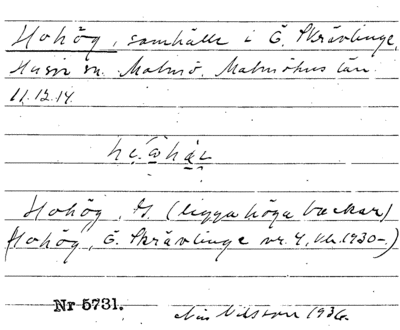 Hohög, samhälle i Ö. Skrävlinge,
Husie sn. Malmö. Malmöhus län.
11.12.14.
Hohög, H. (ligga höga backar)
(Hohög, Ö. Skrävlinge nr. 4, kh. 1930-)
Nr 5731.
Nilsson 1936.